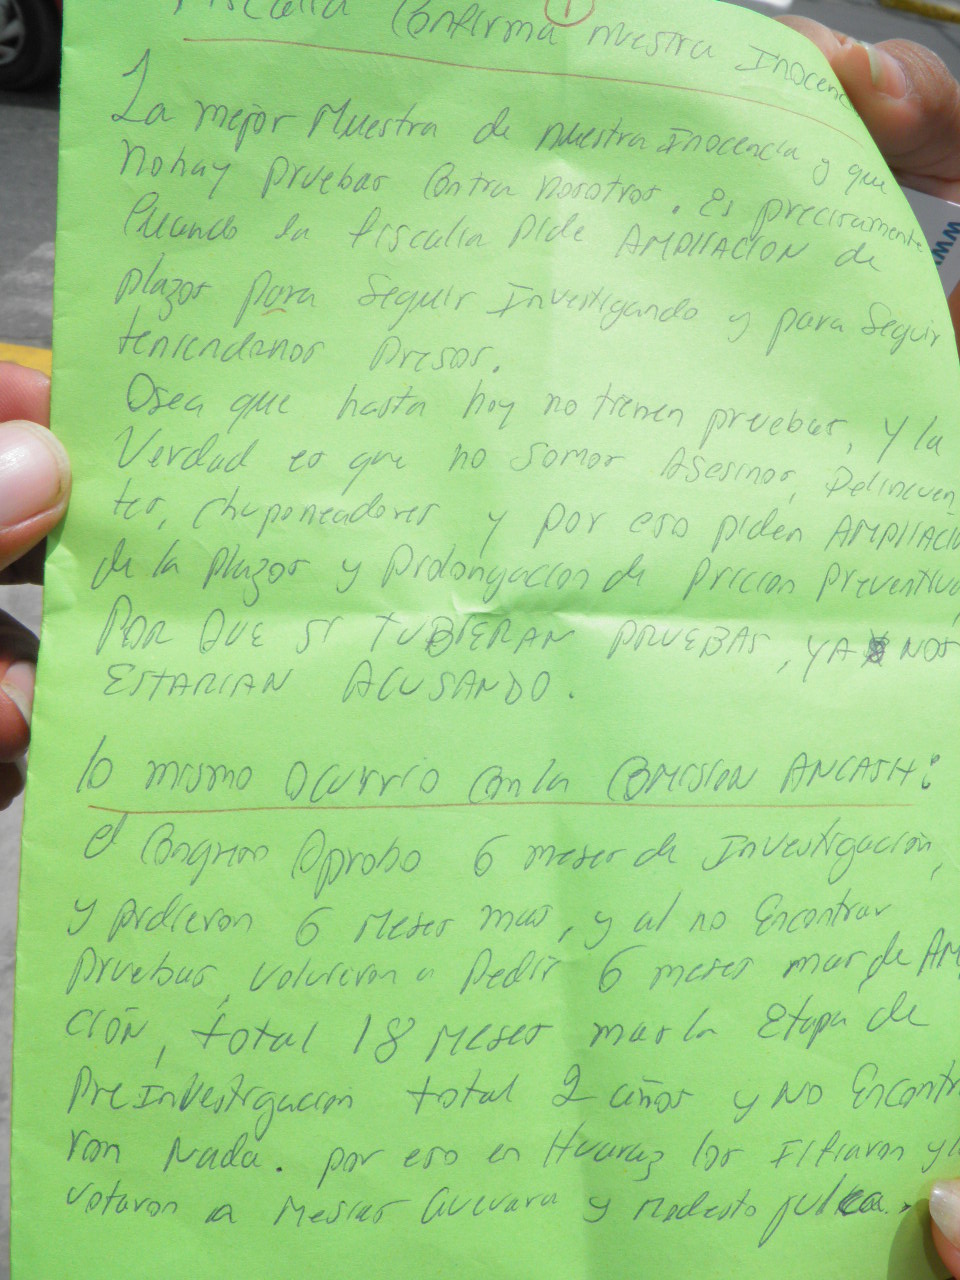 Fiscalia Confirma nuestra Inocenc
1
La mejor Muestra de nuestra Inocencia y que
No hay pruebas Contra nosotros. Es precisamente
Cuando la fiscalia Pide AMPLIACION de
plazos para Seguir Investigando y para Seguir
teniendonos Presos.
Osea que hasta hoy no tienen pruebas, Y la
Verdad es que no Somos Asesinos, Delincuen
tes, Chuponeadores y por eso piden AMPLIACIO
de la Plazos y Prolongacion de Pricion Preventiva
POR QUE SI TUBIERAN PRUEBAS, YA NOS
ESTARIAN ACUSANDO.
lo mismo Ocurrio Con la COMISION ANCASH:
el Congreso Aprobo 6 meses de Investigación,
y pidieron 6 Meses mas, y al no Encontrar
Pruebas, volvieron a Pedir 6 meses mas de AM
CIÓN, total 18 Meses mas la Etapa de
PreInvestigacion total 2 años y NO Encontr
ron Nada. por eso en Huaraz los
votaron a Mesias Guevara y Modesto Julca.
WWW